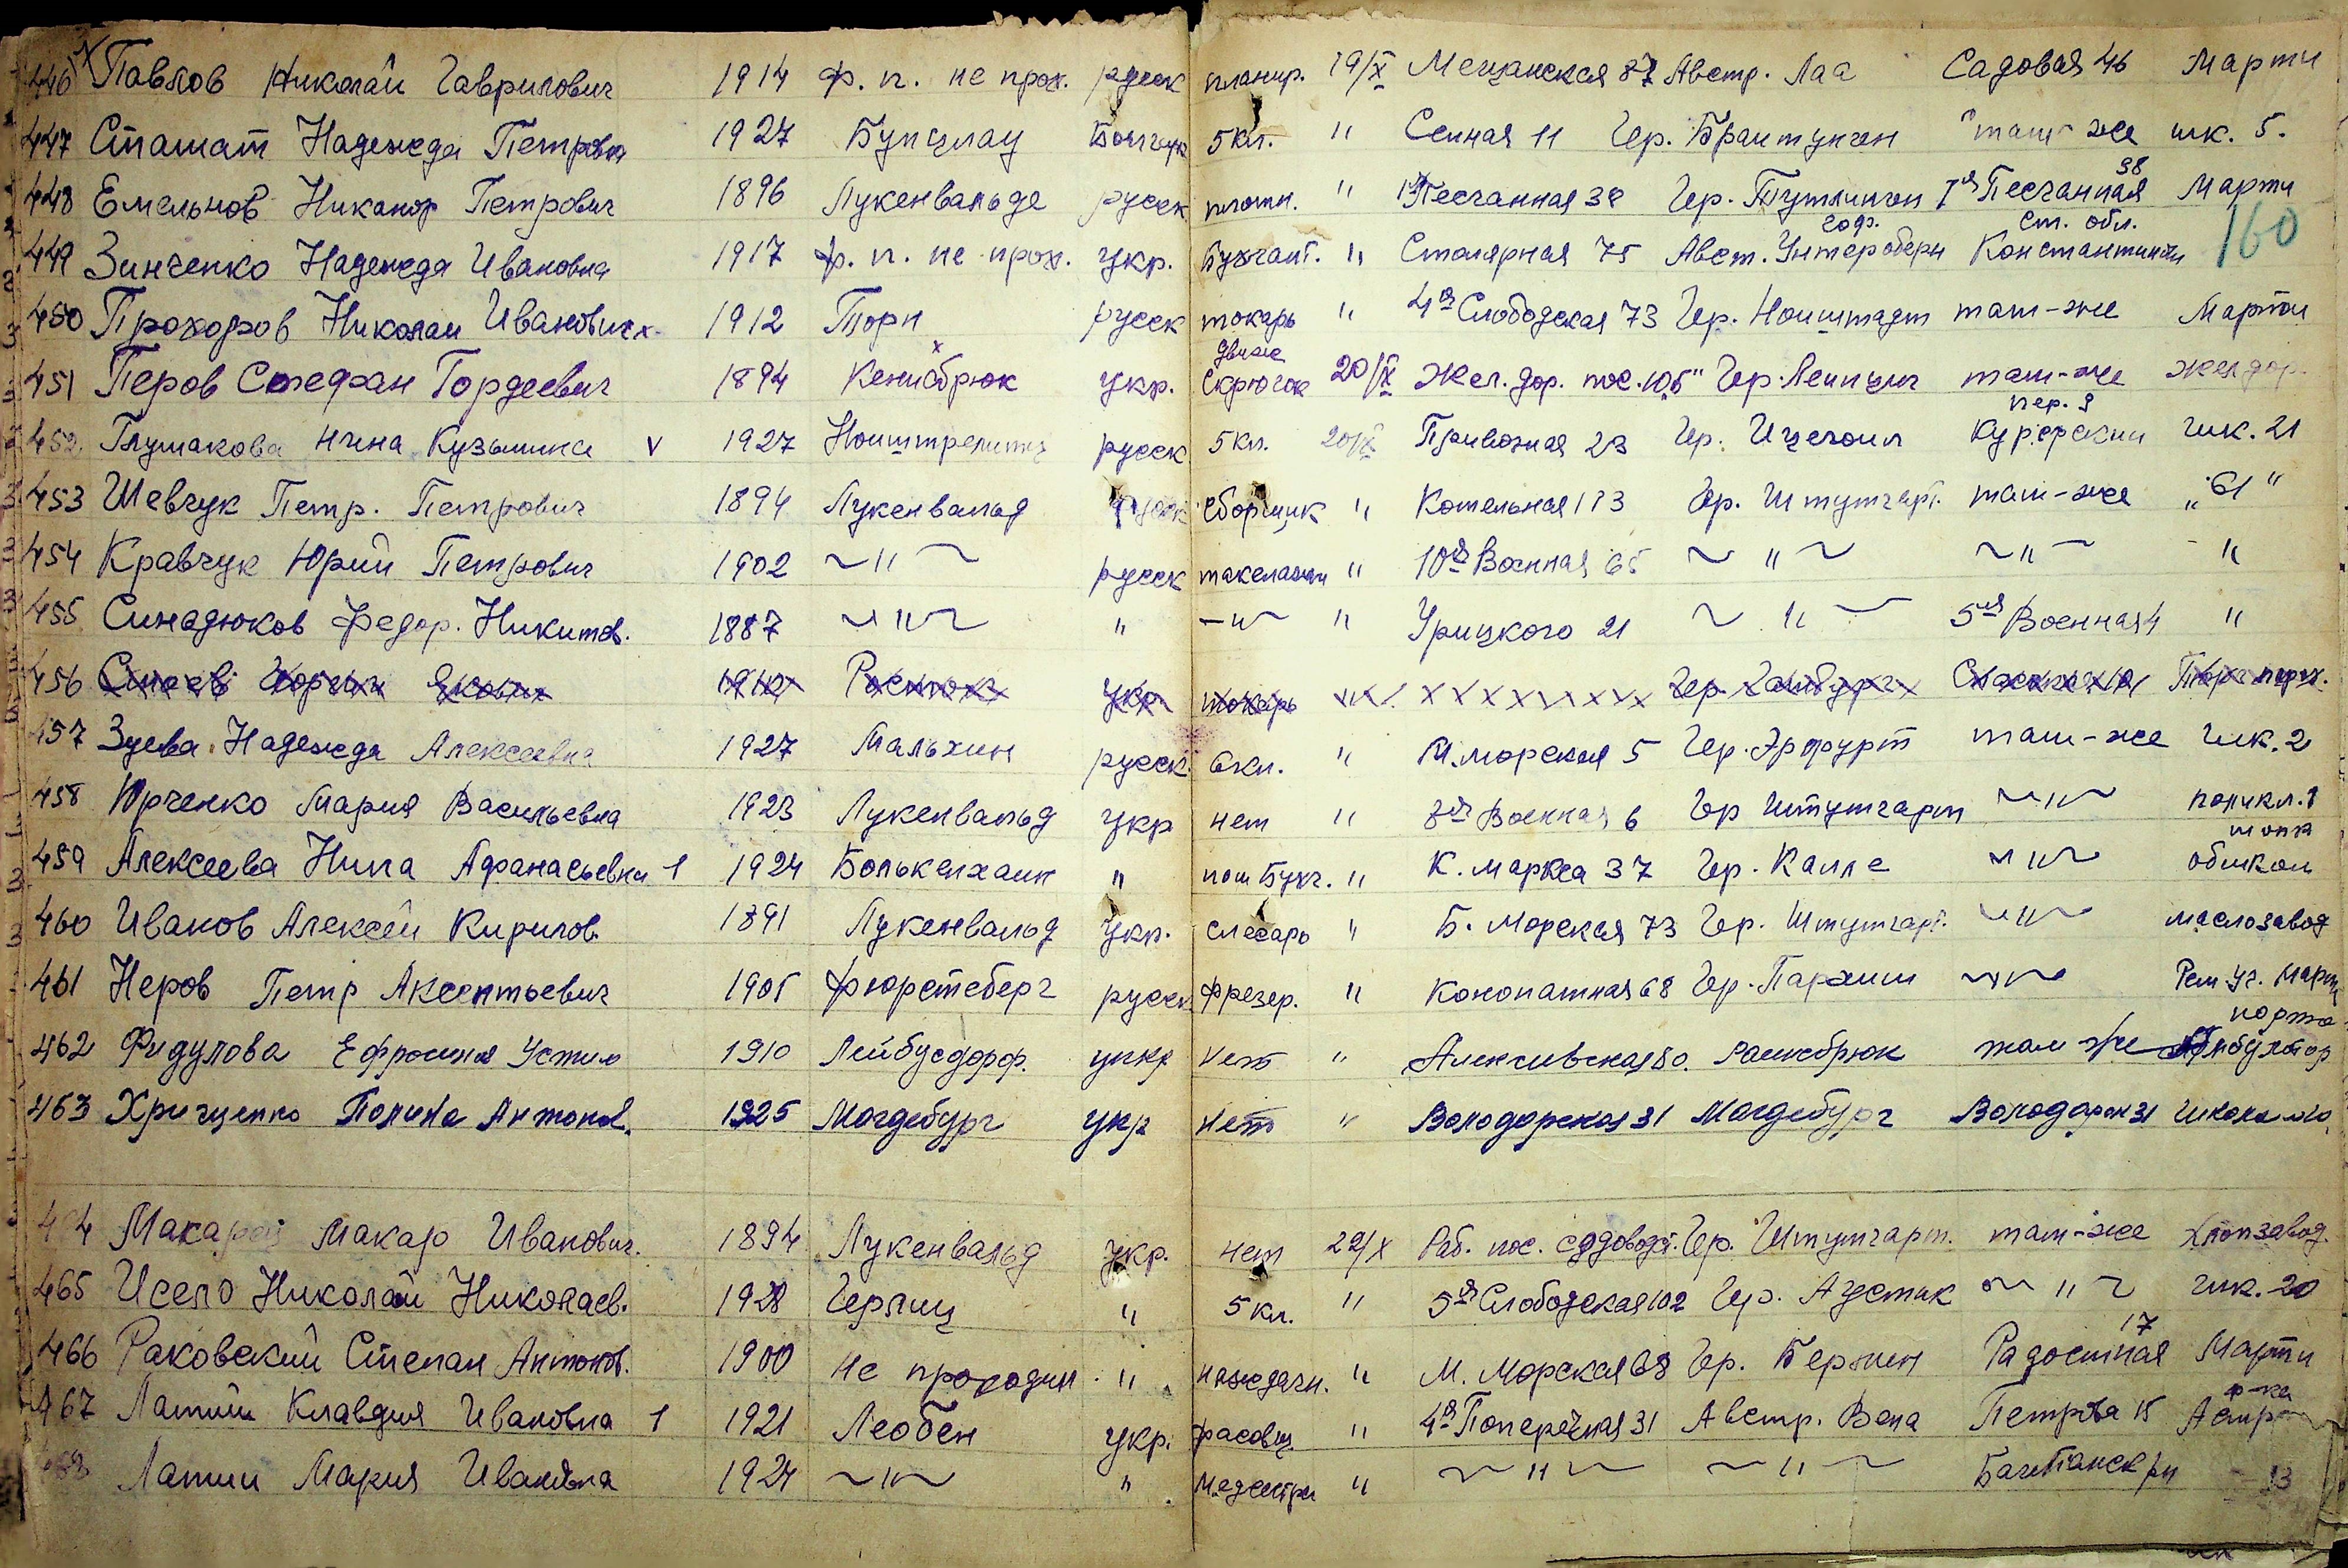 446 Павлов Николай Гаврилович 1914 ф. п. не прох. русск планир. 19/X Мещанская 87 Австр. Лаа Садовая 46 Марти
447 Стамат Надежда Петровна 1927 Бунцлау 5 кл. " Сенная 11 Гер. там же шк. 5.
38
448 Емельнов Никанор Петрович 1896 Лукенвальде русск плотн. " Песчанная 38 Гер. Тутлинген 1я Песчанная Марти
ст. обл. 160
449 Зинченко Надежда Ивановна 1917 ф. п. не прох. укр. Бухгалт. " Столярная 75 Авст. Константиновн
450 Прохоров Николай Иванович 1912 Торн русск токарь " 4я Слободская 73 Гер. Ноиштадт там-же Марти
движ
451 Перов Стефан Гордеевич 1894 укр. 20/X Жел. дор. пос. 105" Гер. Леипциг там-же жел дор.
пер. 9
452 Глушакова Нина Кузьминс v 1927 Ноиштрелитц русск 5 кл. 20/X Привозная 23 Гер. Курерскии шк. 21
453 Шевчук Петр. Петрович 1894 Лукенвальд русск сборщик " Котельная 113 Гер. Штутгарт. там-же "61"
454 Кравчук Юрий Петрович 1902 ~"~ русск такелажн " 10я Военная 65 ~"~ ~"~ "
455 Синадюков Федор. Никитов. 1887 ~"~ " -"- " Урицкого 21 ~"~ 5ая Военная 4 "
456 1912 Росток укр токарь Гер. Гамбург
457 Зуева Надежда Алексеевна 1927 Мальхин русск. 6 кл. " М. морская 5 Гер. Эрфурт там-же шк. 2
458 Юрченко Мария Васильевна 1923 Лукенвальд укр нет " 8я Военная 6 Гер Штутгарт ~"~ поликл. 1
459 Алексеева Нина Афанасьевна 1 1924 Болькенхаин " пом Бухг. " К. маркса 37 Гер. Калле ~"~ обшком
460 Иванов Алексей Кирилов. 1891 Лукенвальд укр. слесарь " Б. Морская 73 Гер. Штутгарт. ~"~ маслозавод
461 Неров Петр Аксентьевич 1905 Фюрстеберг русск фрезер. " Конопатная 68 Гер. Пархим ~"~ Рем. уч. Марти
порта
462 Фидулова Ефросиня Устим 1910 нет " Алексиевская 80. там же Амбулатор
463 Хригценко Полина Антонов. 1925 Магдебург укр нет " Володарская 31 Магдебург Володарск 31 Школа
464 Макар Иванович. 1894 Лукенвальд укр. нет 22/X Раб. пос. садоводст. Гер. Штутгарт. там-же Хлопзавод.
465 Исепо Николай Николаев. 1928 Герлиц " 5 кл. " 5я Слободская 102 Гер. ~"~ шк. 20
17
466 Раковский Степан Антонов. 1900 Не проходил " наждачн. " М. Морская 68 Гер. Берлин Радостная Марти
ф-ка
467 Латии Клавдия Ивановна 1 1921 Леобен укр. фасовщ " 4я Поперечная 31 Австр. Вена Петрова 15
468 Латии Мария Ивановна 1924 ~"~ " Медсестра " ~"~ ~"~ 13